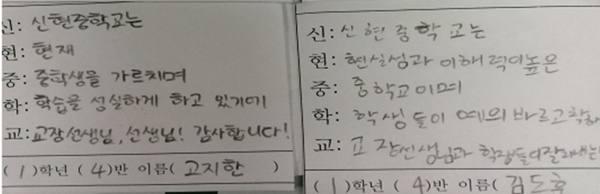 신: 신현중학교는
현: 현재
중: 중학생을 가르치며
학: 학습을 성실하게 하고 있기에
교: 교장선생님, 선생님! 감사합니다!
( 1 )학년 ( 4 )반 이름( 고지한 )
신: 신현중학교는
현: 현실성과 이해력이높은
중: 중학교이며
학: 학생들이 예의 바르고착하
교: 교장선생님과
( 1 )학년 ( 4 )반 이름( 김도훈